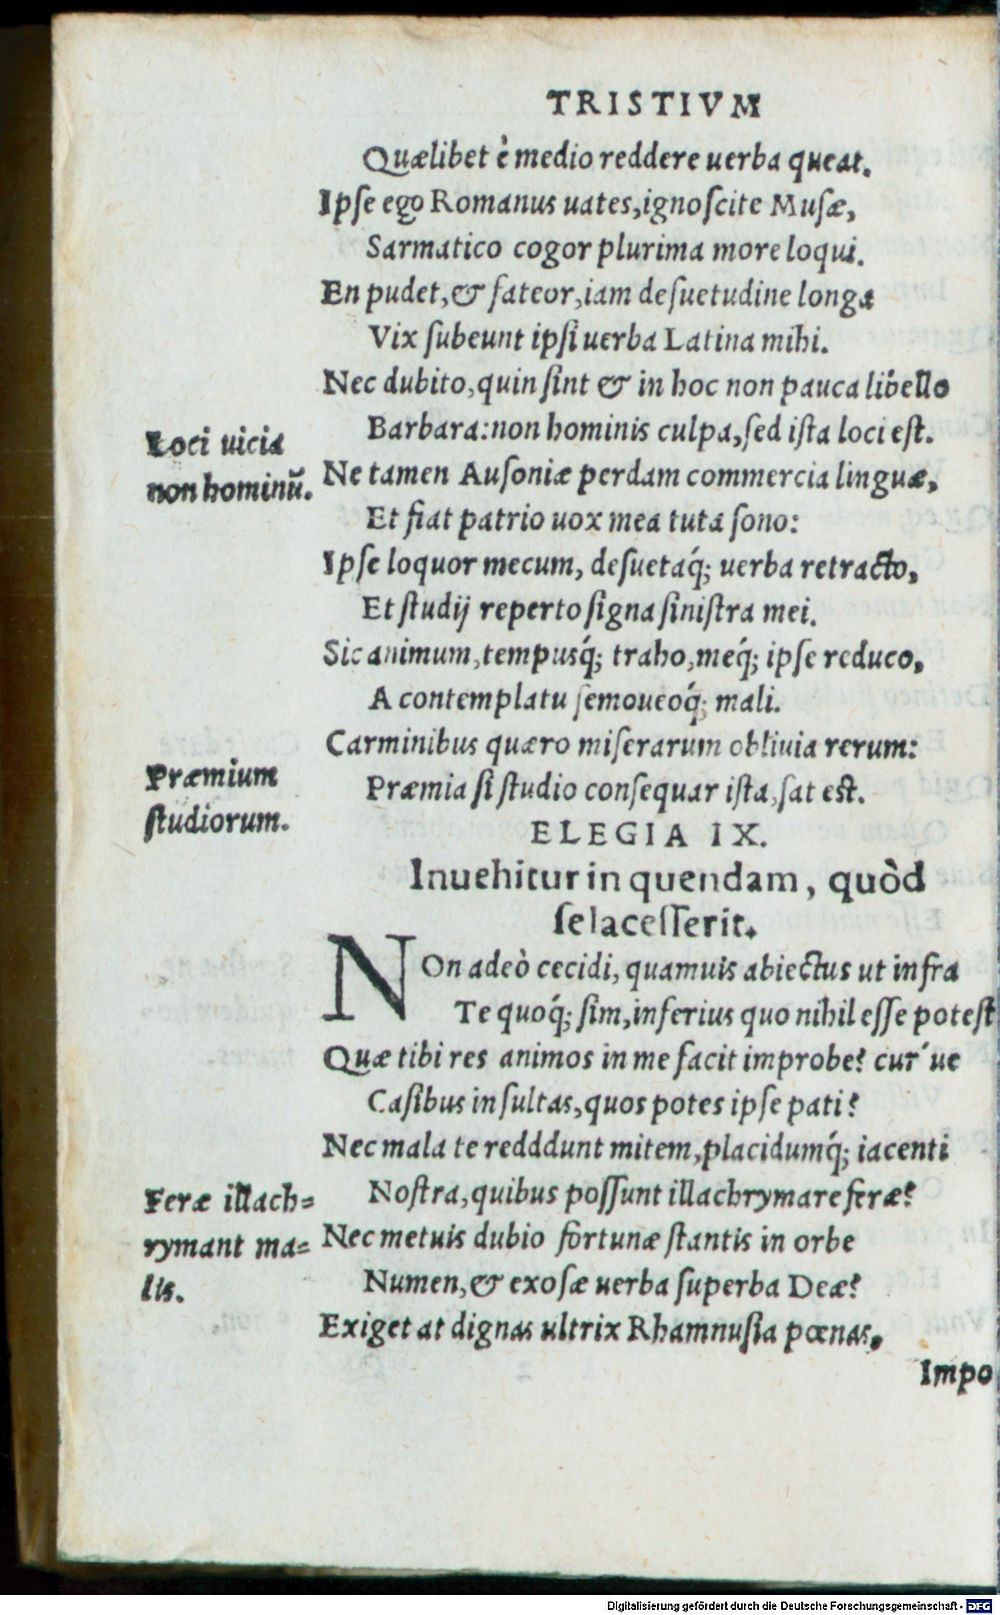 TRISTIVM
Quælibet è medio reddere uerba queat.
Ipſe ego Romanus uates, ignoſcite Muſæ,
Sarmatico cogor plurima more loqui.
En pudet, & fateor, iam deſuetudine longa
Vix ſubeunt ipſi uerba Latina mihi.
Nec dubito, quin ſint & in hoc non pauca libello
Barbara: non hominis culpa, ſed iſta loci eſt.
Loci uicia
non hominū.
Ne tamen Auſoniæ perdam commercia linguæ,
Et fiat patrio uox mea tuta ſono:
Ipſe loquor mecum, deſuetaq́; uerba retracto,
Et ſtudij reperto ſigna ſiniſtra mei.
Sic animum, tempusq́; traho, meq́; ipſe reduco,
A contemplatu ſemoueoq́; mali.
Carminibus quæro miſerarum obliuia rerum:
Præmium
ſtudiorum.
Præmia ſi ſtudio conſequar iſta, ſat eſt.
ELEGIA IX.
Inuehitur in quendam, quòd
ſe laceſſerit.
NOn adeò cecidi, quamuis abiectus ut infra
Te quoq́; ſim, inferius quo nihil eſſe poteſt
Quæ tibi res animos in me facit improbe? cur' ue
Caſibus inſultas, quos potes ipſe pati?
Nec mala te redddunt mitem, placidumq́; iacenti
Noſtra, quibus poſſunt illachrymare feræ?
Feræ illach=
rymant ma=
lis.
Nec metuis dubio fortunæ ſtantis in orbe
Numen, & exoſæ uerba ſuperba Deæ?
Exiget at dignas ultrix Rhamnuſia pœnas,
Impo
Digitalisierung gefördert durch die Deutsche Forschungsgemeinschaft - DFG